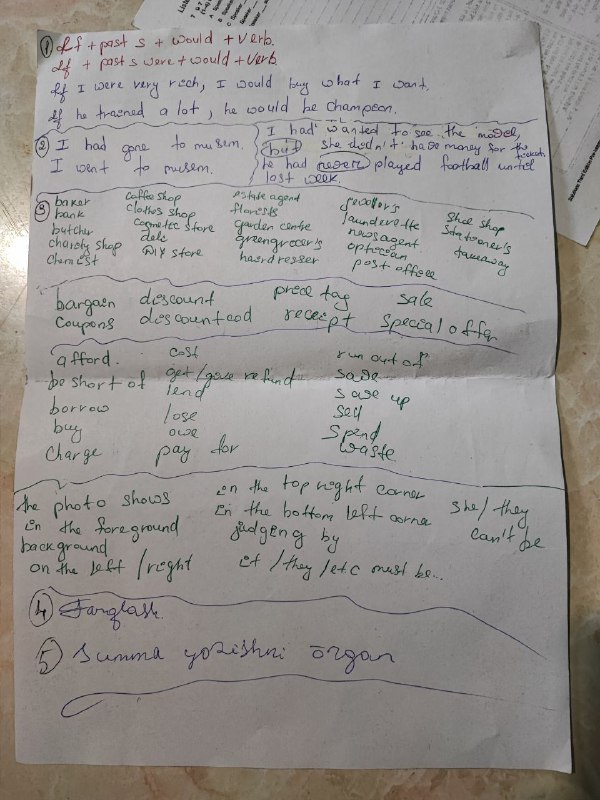 ① If + past s + would + verb.
If + past s were + would + verb
If I were very rich, I would buy what I want.
If he trained a lot, he would be champion.
② I had gone to musum.
I went to musem.
I had wanted to see the model,
but she didn't have money for the tickets.
He had never played football until
last week.
③ baker coffee shop estate agent jeweller's
bank clothes shop florists launderette shoe shop
butcher cosmetic store garden centre newsagent stationer's
charity shop deli greengrocer's optician takeaway
chemist DIY store hairdresser post office
bargain discount price tag sale
coupons discounted receipt special offer
afford. cost run out of
be short of get/give refund save
borrow lend save up
buy lose sell
charge owe spend
pay for waste
the photo shows in the top right corner she/they
in the foreground in the bottom left corne can't be
background judging by
on the left/right it/they/etc must be...
④ Tanglash
⑤ Summa yozishni organ